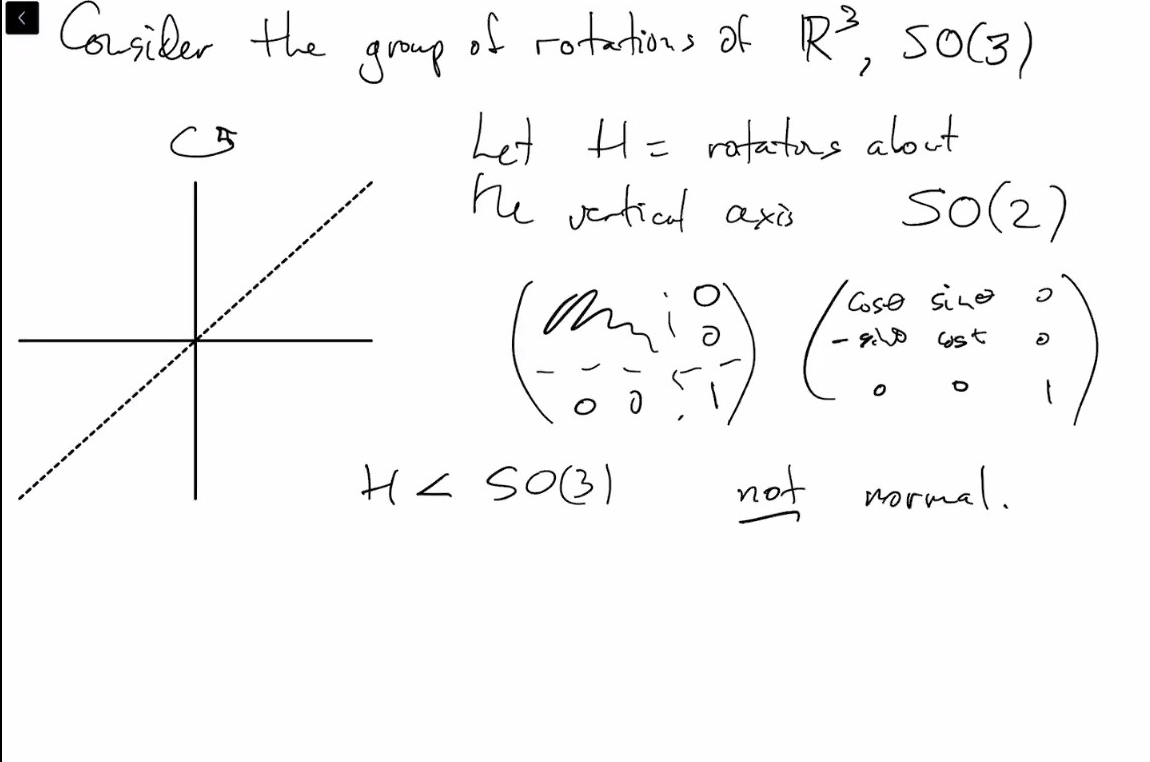 Consider the group of rotations of ℝ³, SO(3)
Let H = rotations about
the vertical axis SO(2)
0 cosθ sinθ 0
0 -sinθ cost 0
0 0 1 0 0 1
H < SO(3) not normal.